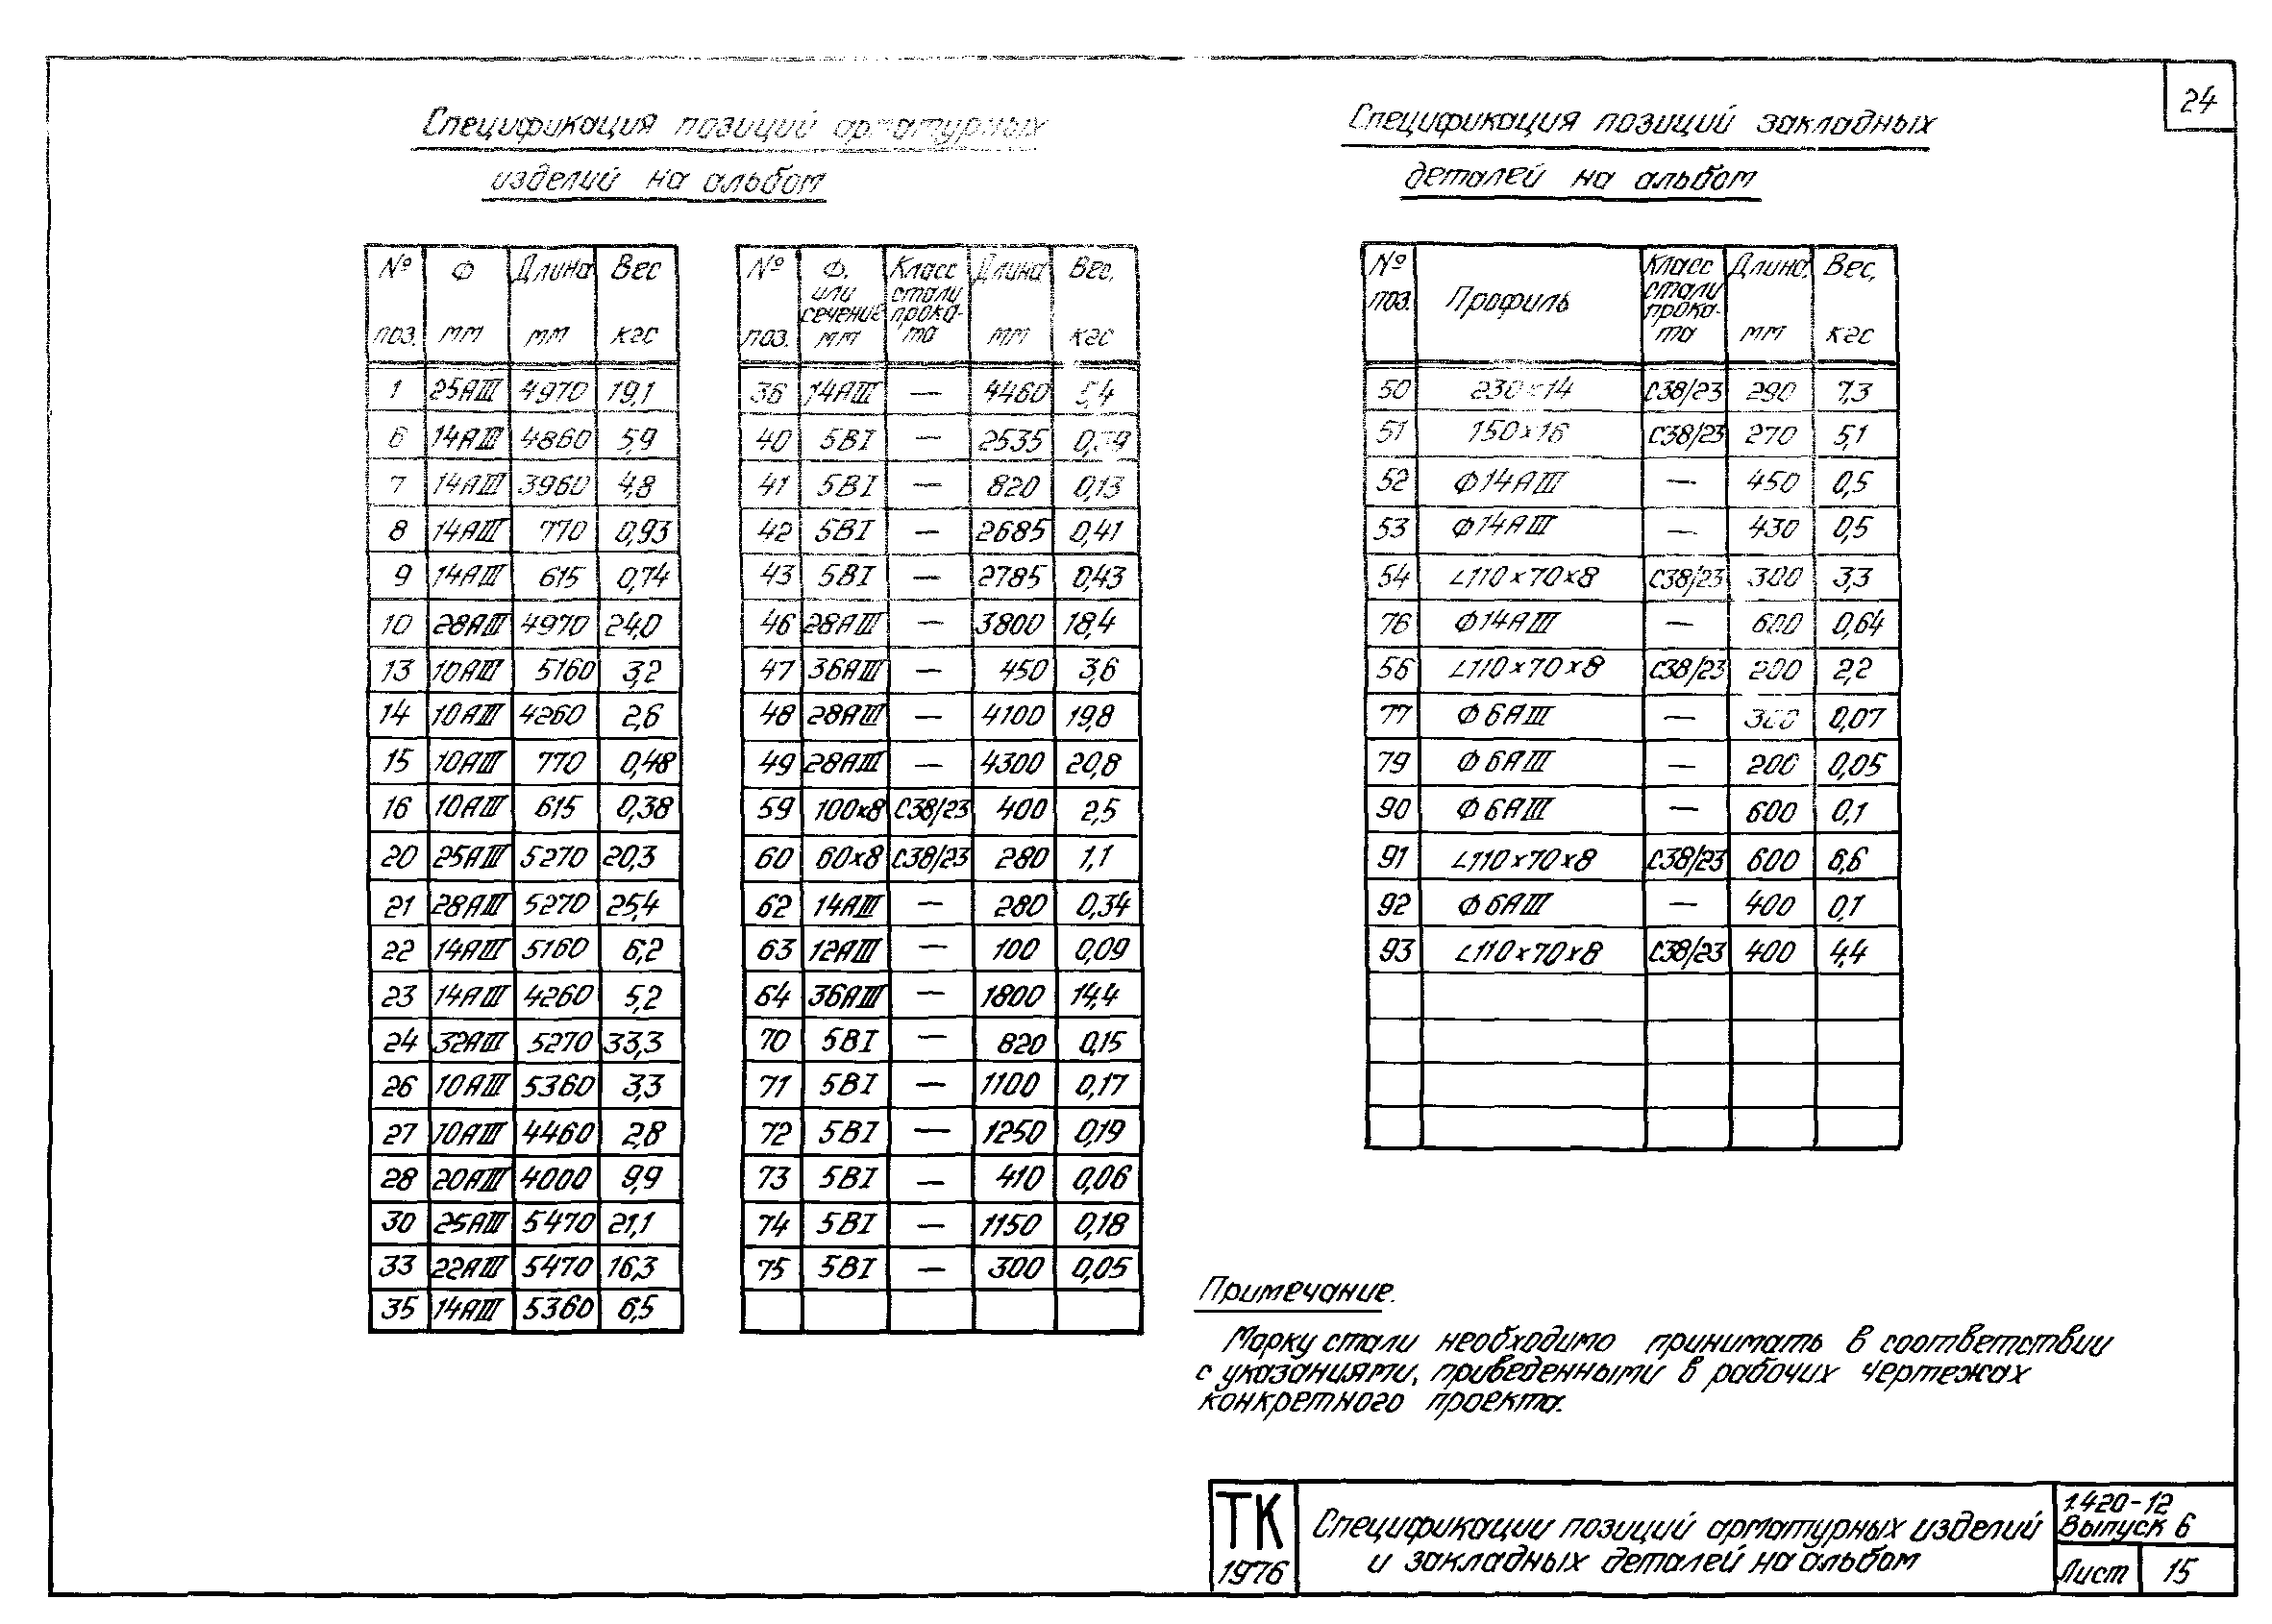 24
Спецификация позиций арматурных
изделий на альбом
Спецификация позиций закладных
деталей на альбом
№ поз. Ф мм Длина мм Вес кгс
1 25АIII 4970 19,1
6 14АIII 4860 5,9
7 14АIII 3960 4,8
8 14АIII 770 0,93
9 14АIII 615 0,74
10 28АIII 4970 24,0
13 10АIII 5160 3,2
14 10АIII 4260 2,6
15 10АIII 770 0,48
16 10АIII 615 0,38
20 25АIII 5270 20,3
21 28АIII 5270 25,4
22 14АIII 5160 6,2
23 14АIII 4260 5,2
24 32АIII 5270 33,3
26 10АIII 5360 3,3
27 10АIII 4460 2,8
28 20АIII 4000 9,9
30 25АIII 5470 21,1
33 22АIII 5470 16,3
35 14АIII 5360 6,5
№ поз. Ф, или сечение мм Класс стали проката Длина мм Вес, кгс
36 14АIII — 4460 5,4
40 5ВI — 2535 0,39
41 5ВI — 820 0,13
42 5ВI — 2685 0,41
43 5ВI — 2785 0,43
46 28АIII — 3800 18,4
47 36АIII — 450 3,6
48 28АIII — 4100 19,8
49 28АIII — 4300 20,8
59 100х8 С38/23 400 2,5
60 60х8 С38/23 280 1,1
62 14АIII — 280 0,34
63 12АIII — 100 0,09
64 36АIII — 1800 14,4
70 5ВI — 820 0,15
71 5ВI — 1100 0,17
72 5ВI — 1250 0,19
73 5ВI — 410 0,06
74 5ВI — 1150 0,18
75 5ВI — 300 0,05
№ поз. Профиль Класс стали проката Длина, мм Вес, кгс
50 230х14 С38/23 290 7,3
51 150х16 С38/23 270 5,1
52 Ф14АIII — 450 0,5
53 Ф14АIII — 430 0,5
54 ∠110х70х8 С38/23 300 3,3
76 Ф14АIII — 600 0,64
56 ∠110х70х8 С38/23 200 2,2
77 Ф6АIII — 300 0,07
79 Ф6АIII — 200 0,05
90 Ф6АIII — 600 0,1
91 ∠110х70х8 С38/23 600 6,6
92 Ф6АIII — 400 0,1
93 ∠110х70х8 С38/23 400 4,4
Примечание.
Марку стали необходимо принимать в соответствии
с указаниями, приведенными в рабочих чертежах
конкретного проекта.
ТК
1976
Спецификации позиций арматурных изделий
и закладных деталей на альбом
1.420-12
Выпуск 6
Лист 15